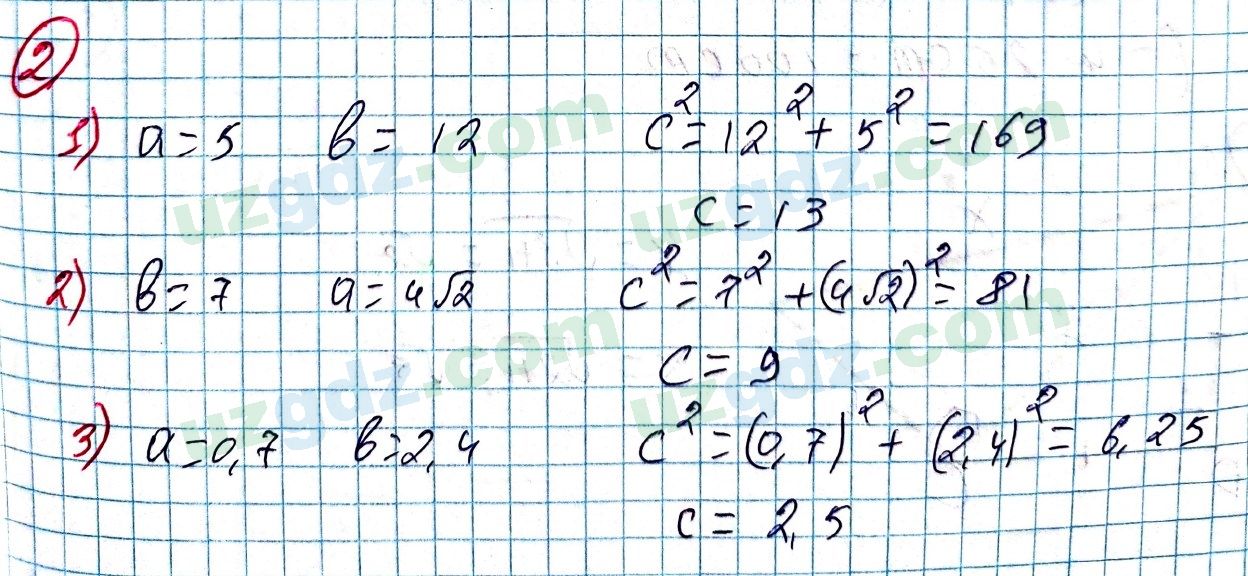 2
1) a = 5 b = 12 c² = 12² + 5² = 169
c = 13
2) b = 7 a = 4√2 c² = 7² + (4√2)² = 81
c = 9
3) a = 0,7 b = 2,4 c² = (0,7)² + (2,4)² = 6,25
c = 2,5
uzgdz.com
uzgdz.com
uzgdz.com
uzgdz.com